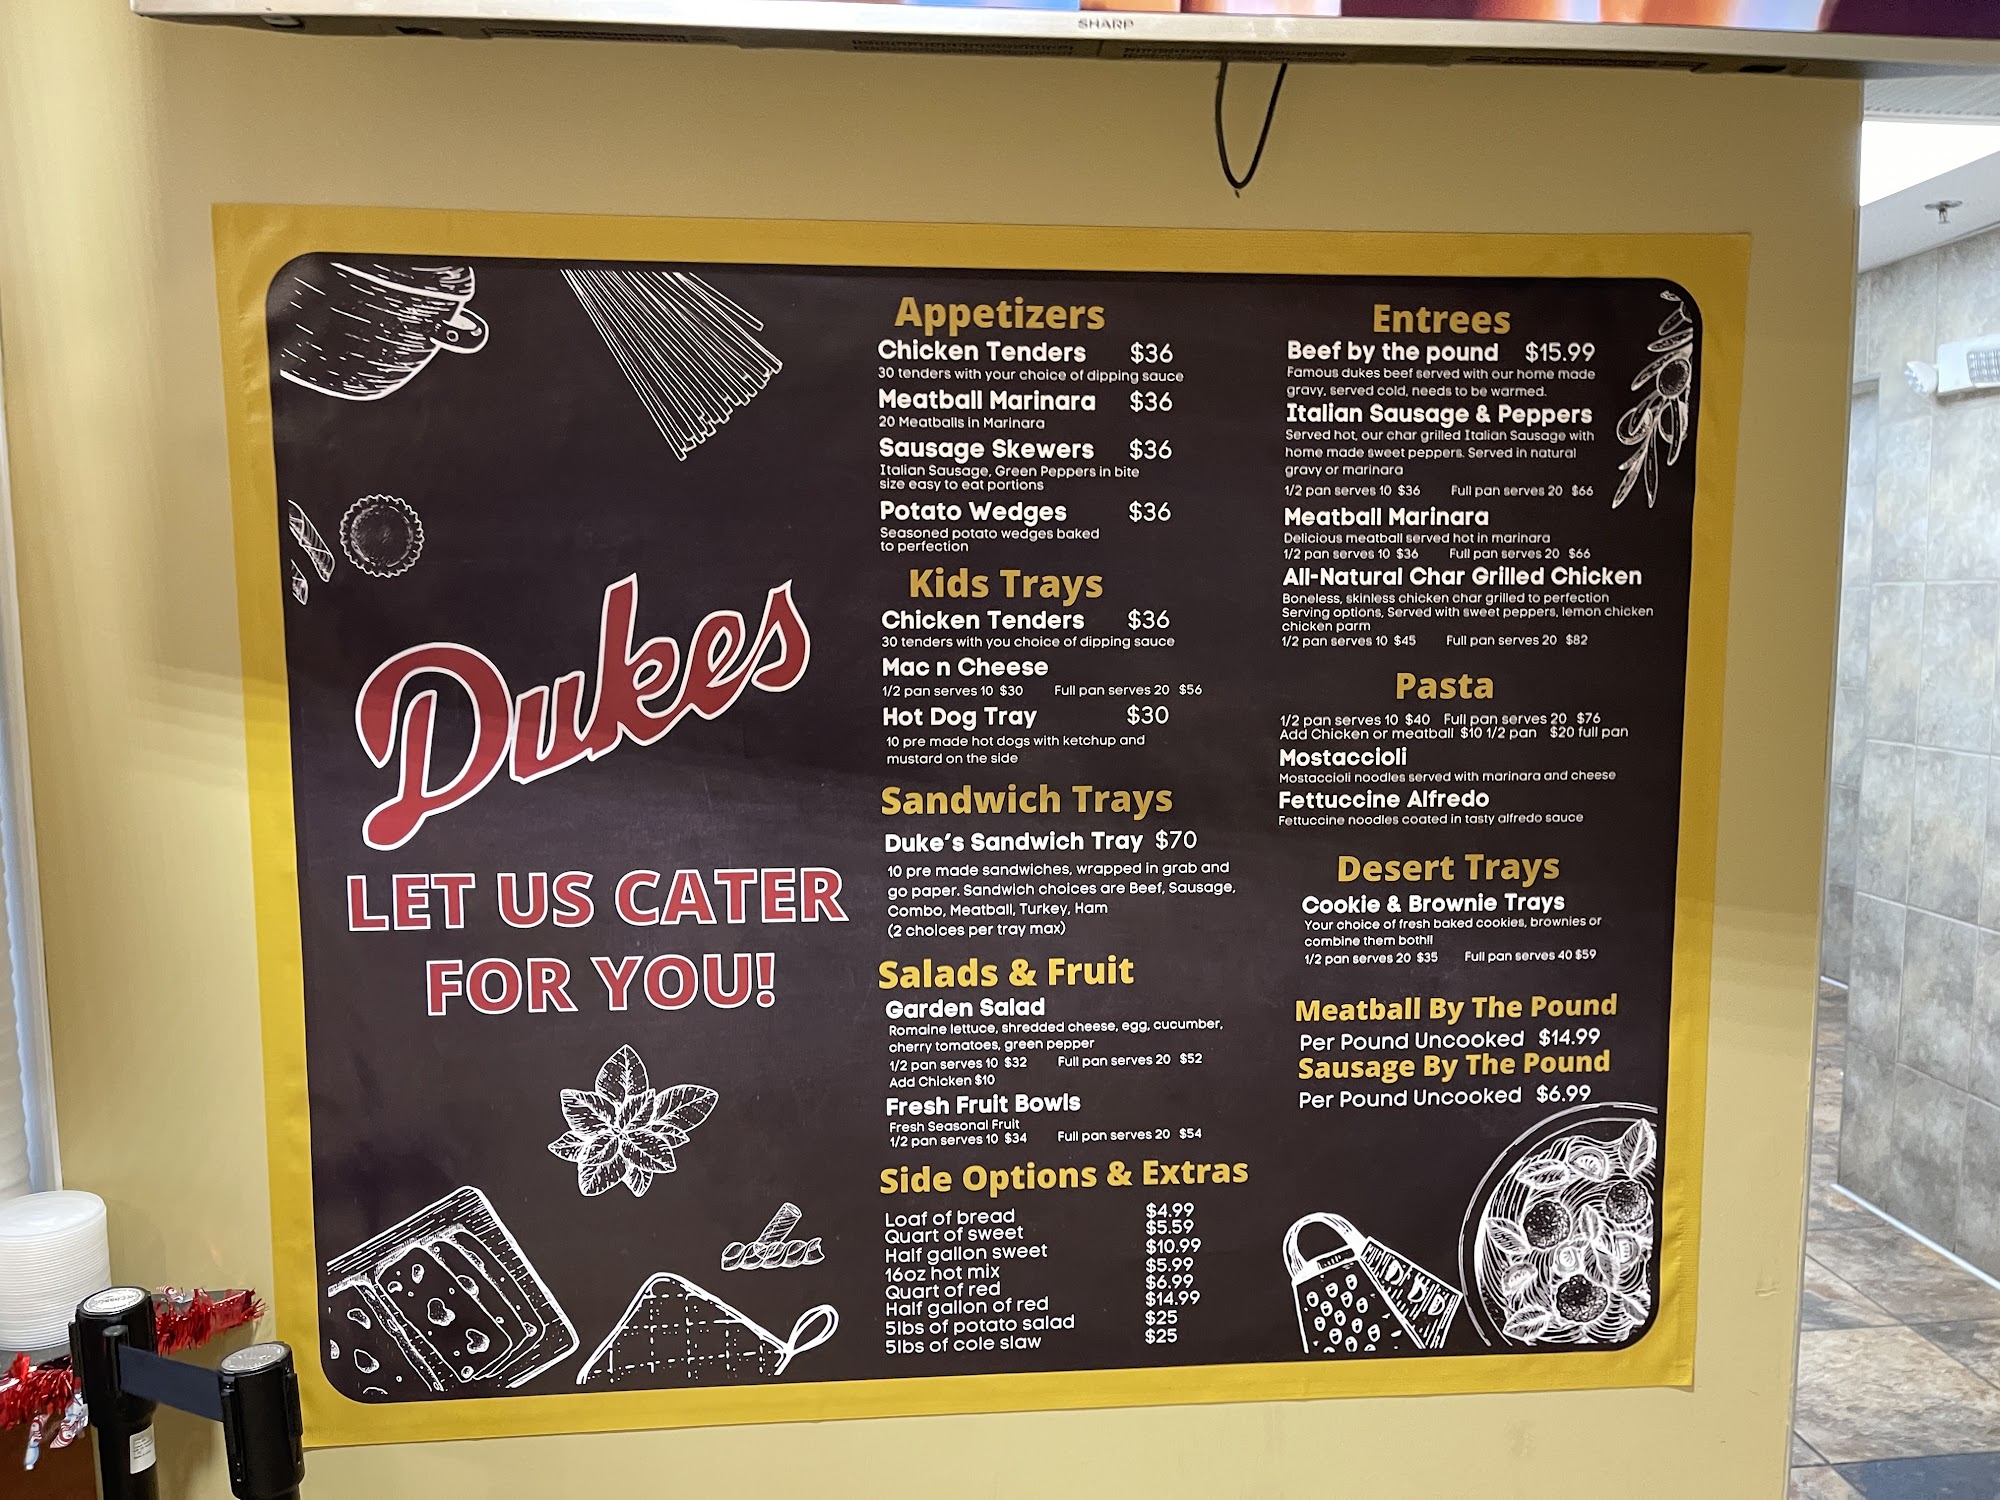 SHARP
Dukes
LET US CATER
FOR YOU!
Appetizers
Chicken Tenders $36
30 tenders with your choice of dipping sauce
Meatball Marinara $36
20 Meatballs in Marinara
Sausage Skewers $36
Italian Sausage, Green Peppers in bite
size easy to eat portions
Potato Wedges $36
Seasoned potato wedges baked
to perfection
Kids Trays
Chicken Tenders $36
30 tenders with you choice of dipping sauce
Mac n Cheese
1/2 pan serves 10 $30 Full pan serves 20 $56
Hot Dog Tray $30
10 pre made hot dogs with ketchup and
mustard on the side
Sandwich Trays
Duke's Sandwich Tray $70
10 pre made sandwiches, wrapped in grab and
go paper. Sandwich choices are Beef, Sausage,
Combo, Meatball, Turkey, Ham
(2 choices per tray max)
Salads & Fruit
Garden Salad
Romaine lettuce, shredded cheese, egg, cucumber,
cherry tomatoes, green pepper
1/2 pan serves 10 $32 Full pan serves 20 $52
Add Chicken $10
Fresh Fruit Bowls
Fresh Seasonal Fruit
1/2 pan serves 10 $34 Full pan serves 20 $54
Side Options & Extras
Loaf of bread $4.99
Quart of sweet $5.59
Half gallon sweet $10.99
16oz hot mix $5.99
Quart of red $6.99
Half gallon of red $14.99
5lbs of potato salad $25
5lbs of cole slaw $25
Entrees
Beef by the pound $15.99
Famous dukes beef served with our home made
gravy, served cold, needs to be warmed.
Italian Sausage & Peppers
Served hot, our char grilled Italian Sausage with
home made sweet peppers. Served in natural
gravy or marinara
1/2 pan serves 10 $36 Full pan serves 20 $66
Meatball Marinara
Delicious meatball served hot in marinara
1/2 pan serves 10 $36 Full pan serves 20 $66
All-Natural Char Grilled Chicken
Boneless, skinless chicken char grilled to perfection
Serving options, Served with sweet peppers, lemon chicken
chicken parm
1/2 pan serves 10 $45 Full pan serves 20 $82
Pasta
1/2 pan serves 10 $40 Full pan serves 20 $76
Add Chicken or meatball $10 1/2 pan $20 full pan
Mostaccioli
Mostaccioli noodles served with marinara and cheese
Fettuccine Alfredo
Fettuccine noodles coated in tasty alfredo sauce
Desert Trays
Cookie & Brownie Trays
Your choice of fresh baked cookies, brownies or
combine them both!!
1/2 pan serves 20 $35 Full pan serves 40 $59
Meatball By The Pound
Per Pound Uncooked $14.99
Sausage By The Pound
Per Pound Uncooked $6.99